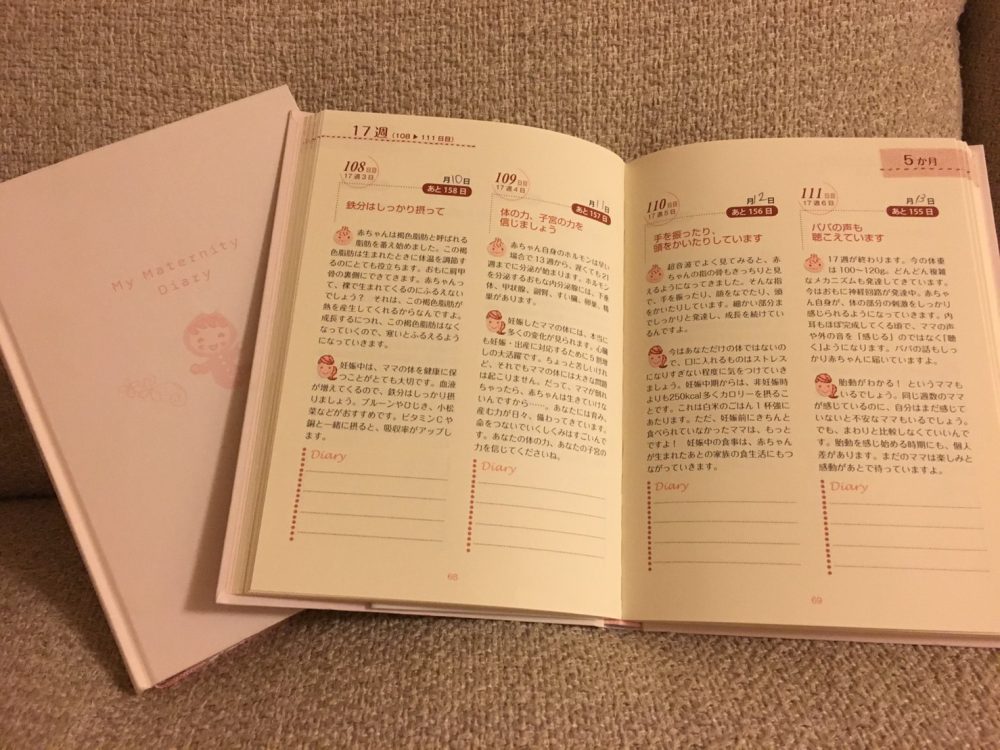 My Maternity
Diary
17週(108▶111日目)
108日目
17週3日
月10日
あと158日
鉄分はしっかり摂って
赤ちゃんは褐色脂肪と呼ばれる
脂肪を蓄え始めました。この褐
色脂肪は生まれたときに体温を調節す
るのにとても役立ちます。おもに肩甲
骨の裏側にできてきます。赤ちゃんっ
て、裸で生まれてくるのにふるえない
でしょう? それは、この褐色脂肪が
熱を産生してくれるからなんですよ。
成長するにつれ、この褐色脂肪はなく
なっていくので、寒いとふるえるよう
になっていきます。
妊娠中は、ママの体を健康に保
つことがとても大切です。血液
が増えてくるので、鉄分はしっかり摂
りましょう。プルーンやひじき、小松
菜などがおすすめです。ビタミンCや
銅と一緒に摂ると、吸収率がアップし
ます。
Diary
109日目
17週4日
月11日
あと157日
体の力、子宮の力を
信じましょう
赤ちゃん自身のホルモンは早い
場合で13週から、遅くても?!
週までに分泌が始まります。ホルモン
を分泌するおもな内分泌腺には、下垂
体、甲状腺、副腎、すい臓、卵巣、精
巣があります。
妊娠したママの体には、本当に
多くの変化が見られます。心臓
も妊娠・出産に対応するために5割増
しの大活躍です。ちょっと苦しいけれ
ど、それでもママの体には大きな問題
は起こりません。だって、ママが倒れ
ちゃったら、赤ちゃんは生きていけな
いんですから……。あなたには育み、
産む力が日々、備わってきています。
命をつないでいくしくみはすごいんで
す。あなたの体の力、あなたの子宮の
力を信じてくださいね。
Diary
68
5か月
110日目
17週5日
月12日
あと156日
手を振ったり、
頭をかいたりしています
超音波でよく見てみると、赤
ちゃんの指の骨もきっちりと見
えるようになってきました。そんな指
で、手を振ったり、顔をなでたり、頭
をかいたりしています。細かい部分ま
でしっかりと発達し、成長を続けてい
るんですよ。
今はあなただけの体ではないの
で、口に入れるものはストレス
になりすぎない程度に気をつけていき
ましょう。妊娠中期からは、非妊娠時
よりも250kcal多くカロリーを摂るこ
とです。これは白米のごはん1杯強に
あたります。ただ、妊娠前にきちんと
食べられていなかったママは、もっと
ですよ! 妊娠中の食事は、赤ちゃん
が生まれたあとの家族の食生活にもつ
ながっていきます。
Diary
111日目
17週6日
月13日
あと155日
パパの声も
聴こえています
17週が終わります。今の体重
は100〜120g。どんどん複雑
なメカニズムも発達してきています。
今はおもに神経回路が発達中。赤ちゃ
ん自身が、体の部分の刺激をしっかり
感じられるようになっていきます。内
耳もほぼ完成してくる頃で、ママの声
や外の音を「感じる」のではなく「聴
く」ようになります。パパの話もしっ
かり赤ちゃんに届いていますよ。
胎動がわかる! というママ
もいるでしょう。同じ週数のママ
が感じているのに、自分はまだ感じて
いないと不安なママもいるでしょう。
でも、まわりと比較しなくていいんで
す。胎動を感じ始める時期にも、個人
差があります。まだのママは楽しみと
感動があとで待っていますよ。
Diary
69